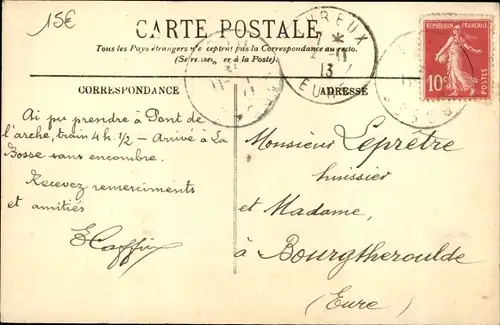 15€
CARTE POSTALE
Tous les Pays étrangers n'acceptent pas la Correspondance au recto.
(Se renseigner à la Poste).
REUX
11
13
EURE
RÉPUBLIQUE FRANÇAISE
10c
POSTES
CORRESPONDANCE
ADRESSE
Ai pu prendre à Pont de
l'arche, train 4 h. 1/2 - Arrivé à La
Bosse sans encombre.
Recevez remerciments
et amitiés
Monsieur Leprêtre
huissier
et Madame,
à Bourgtheroulde
(Eure)